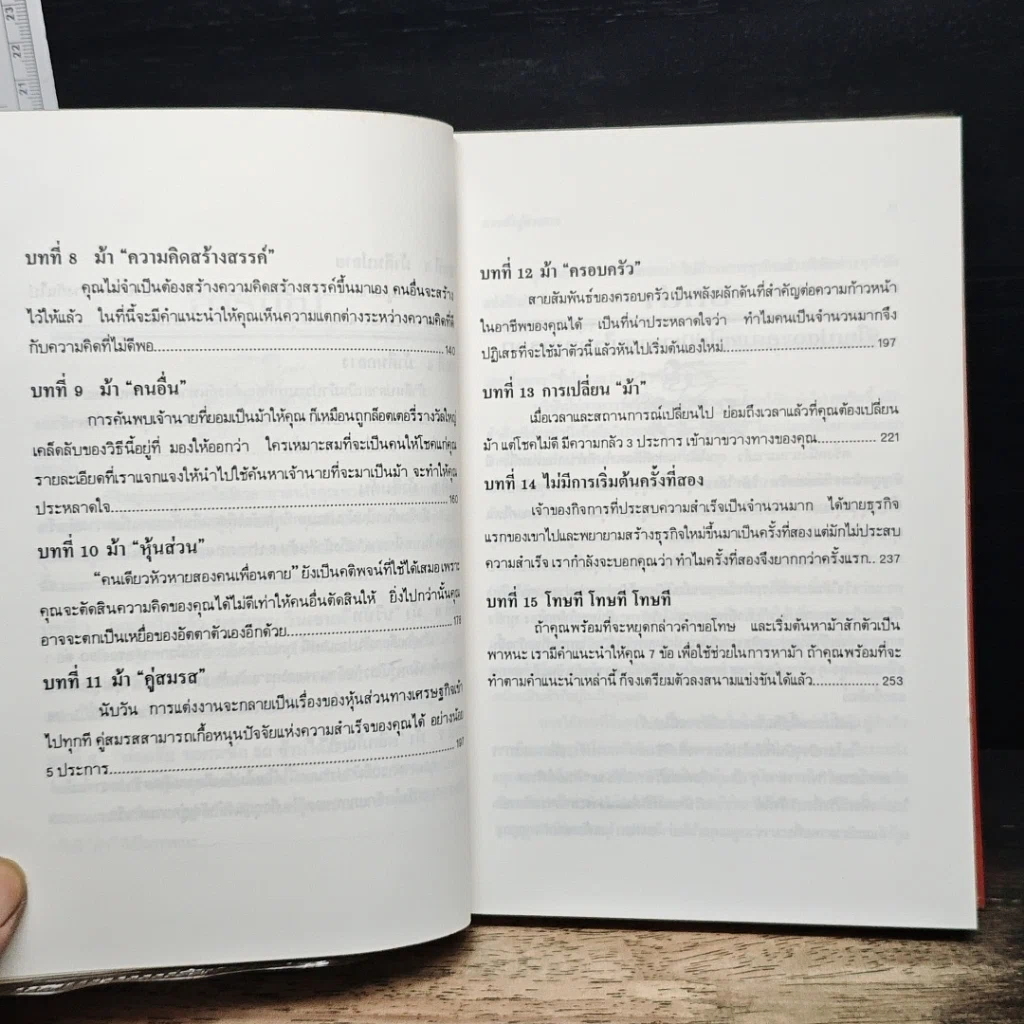 บทที่ 8 ม้า “ความคิดสร้างสรรค์”
คุณไม่จำเป็นต้องสร้างความคิดสร้างสรรค์ขึ้นมาเอง คนอื่นจะสร้าง
ไว้ให้แล้ว ในที่นี้จะมีคำแนะนำให้คุณเห็นความแตกต่างระหว่างความคิดที่ดี
กับความคิดที่ไม่ดีพอ...................................................................... 140
บทที่ 9 ม้า “คนอื่น”
การค้นพบเจ้านายที่ยอมเป็นม้าให้คุณ ก็เหมือนถูกล็อตเตอรี่รางวัลใหญ่
เคล็ดลับของวิธีนี้อยู่ที่ มองให้ออกว่า ใครเหมาะสมที่จะเป็นคนให้โชคแก่คุณ
รายละเอียดที่เราแจกแจงให้นำไปใช้ค้นหาเจ้านายที่จะมาเป็นม้า จะทำให้คุณ
ประหลาดใจ.................................................................................. 160
บทที่ 10 ม้า “หุ้นส่วน”
“คนเดียวหัวหายสองคนเพื่อนตาย” ยังเป็นคติพจน์ที่ใช้ได้เสมอ เพราะ
คุณจะตัดสินความคิดของคุณได้ไม่ดีเท่าให้คนอื่นตัดสินให้ ยิ่งไปกว่านั้นคุณ
อาจจะตกเป็นเหยื่อของอัตตาตัวเองอีกด้วย......................................... 178
บทที่ 11 ม้า “คู่สมรส”
นับวัน การแต่งงานจะกลายเป็นเรื่องของหุ้นส่วนทางเศรษฐกิจเข้า
ไปทุกที คู่สมรสสามารถเกื้อหนุนปัจจัยแห่งความสำเร็จของคุณได้ อย่างน้อย
5 ประการ..................................................................................... 191
บทที่ 12 ม้า “ครอบครัว”
สายสัมพันธ์ของครอบครัวเป็นพลังผลักดันที่สำคัญต่อความก้าวหน้า
ในอาชีพของคุณได้ เป็นที่น่าประหลาดใจว่า ทำไมคนเป็นจำนวนมากจึง
ปฏิเสธที่จะใช้ม้าตัวนี้ แล้วหันไปเริ่มต้นเองใหม่.................................. 197
บทที่ 13 การเปลี่ยน “ม้า”
เมื่อเวลาและสถานการณ์เปลี่ยนไป ย่อมถึงเวลาแล้วที่คุณต้องเปลี่ยน
ม้า แต่โชคไม่ดี มีความกลัว 3 ประการ เข้ามาขวางทางของคุณ............... 221
บทที่ 14 ไม่มีการเริ่มต้นครั้งที่สอง
เจ้าของกิจการที่ประสบความสำเร็จเป็นจำนวนมาก ได้ขายธุรกิจ
แรกของเขาไปและพยายามสร้างธุรกิจใหม่ขึ้นมาเป็นครั้งที่สอง แต่มักไม่ประสบ
ความสำเร็จ เรากำลังจะบอกคุณว่า ทำไมครั้งที่สองจึงยากกว่าครั้งแรก.. 237
บทที่ 15 โทษที โทษที โทษที
ถ้าคุณพร้อมที่จะหยุดกล่าวคำขอโทษ และเริ่มต้นหาม้าสักตัวเป็น
พาหนะ เรามีคำแนะนำให้คุณ 7 ข้อ เพื่อใช้ช่วยในการหาม้า ถ้าคุณพร้อมที่จะ
ทำตามคำแนะนำเหล่านี้ ก็จงเตรียมตัวลงสนามแข่งขันได้แล้ว................ 253
23
22
21